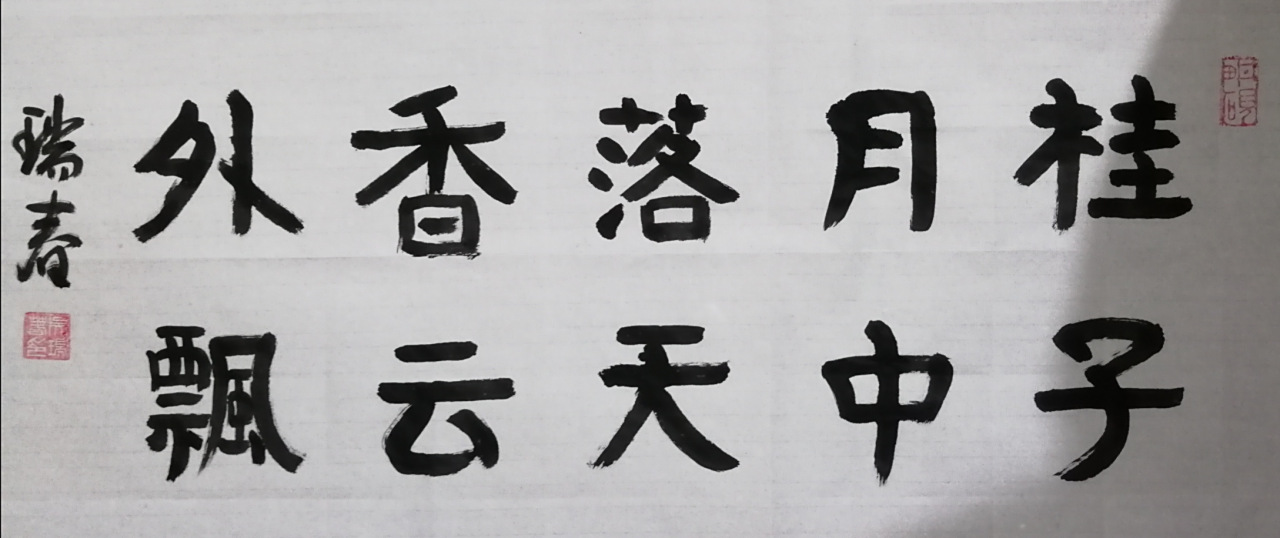 桂子
月中
落天
香云
外飄
瑞春